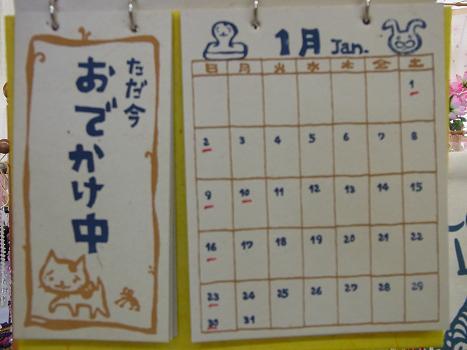 ただ今
おでかけ中
1月 Jan.
日 月 火 水 木 金 土
1
2 3 4 5 6 7 8
9 10 11 12 13 14 15
16 17 18 19 20 21 22
23 24 25 26 27 28 29
30 31